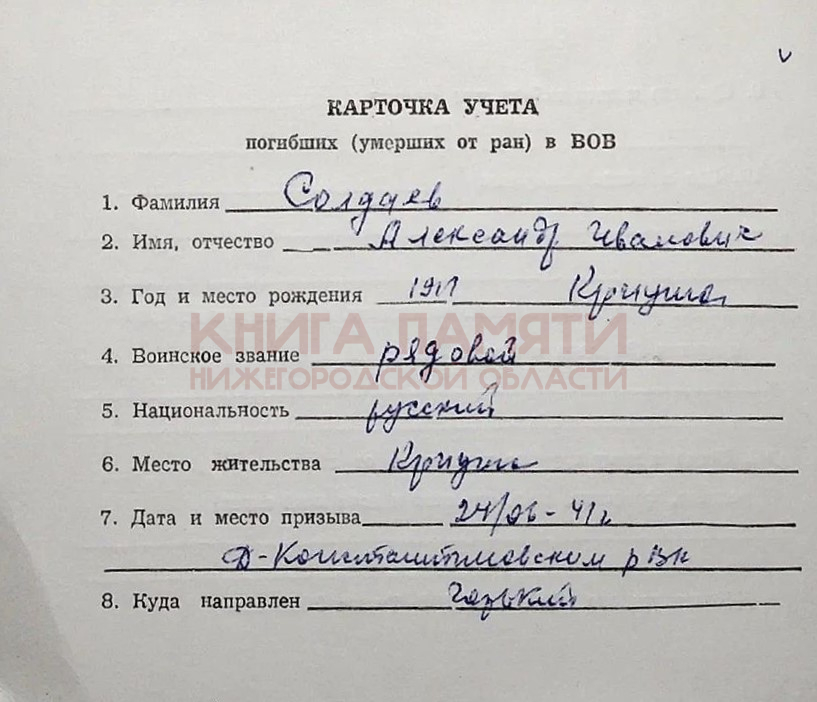 КАРТОЧКА УЧЕТА
погибших (умерших от ран) в ВОВ
1. Фамилия Солдаев
2. Имя, отчество Александр Иванович
3. Год и место рождения 1911 Криуша
КНИГА ПАМЯТИ
4. Воинское звание рядовой
НИЖЕГОРОДСКОЙ ОБЛАСТИ
5. Национальность русский
6. Место жительства Криуша
7. Дата и место призыва 24/06-41г
Д-Константиновском рвк
8. Куда направлен Горький